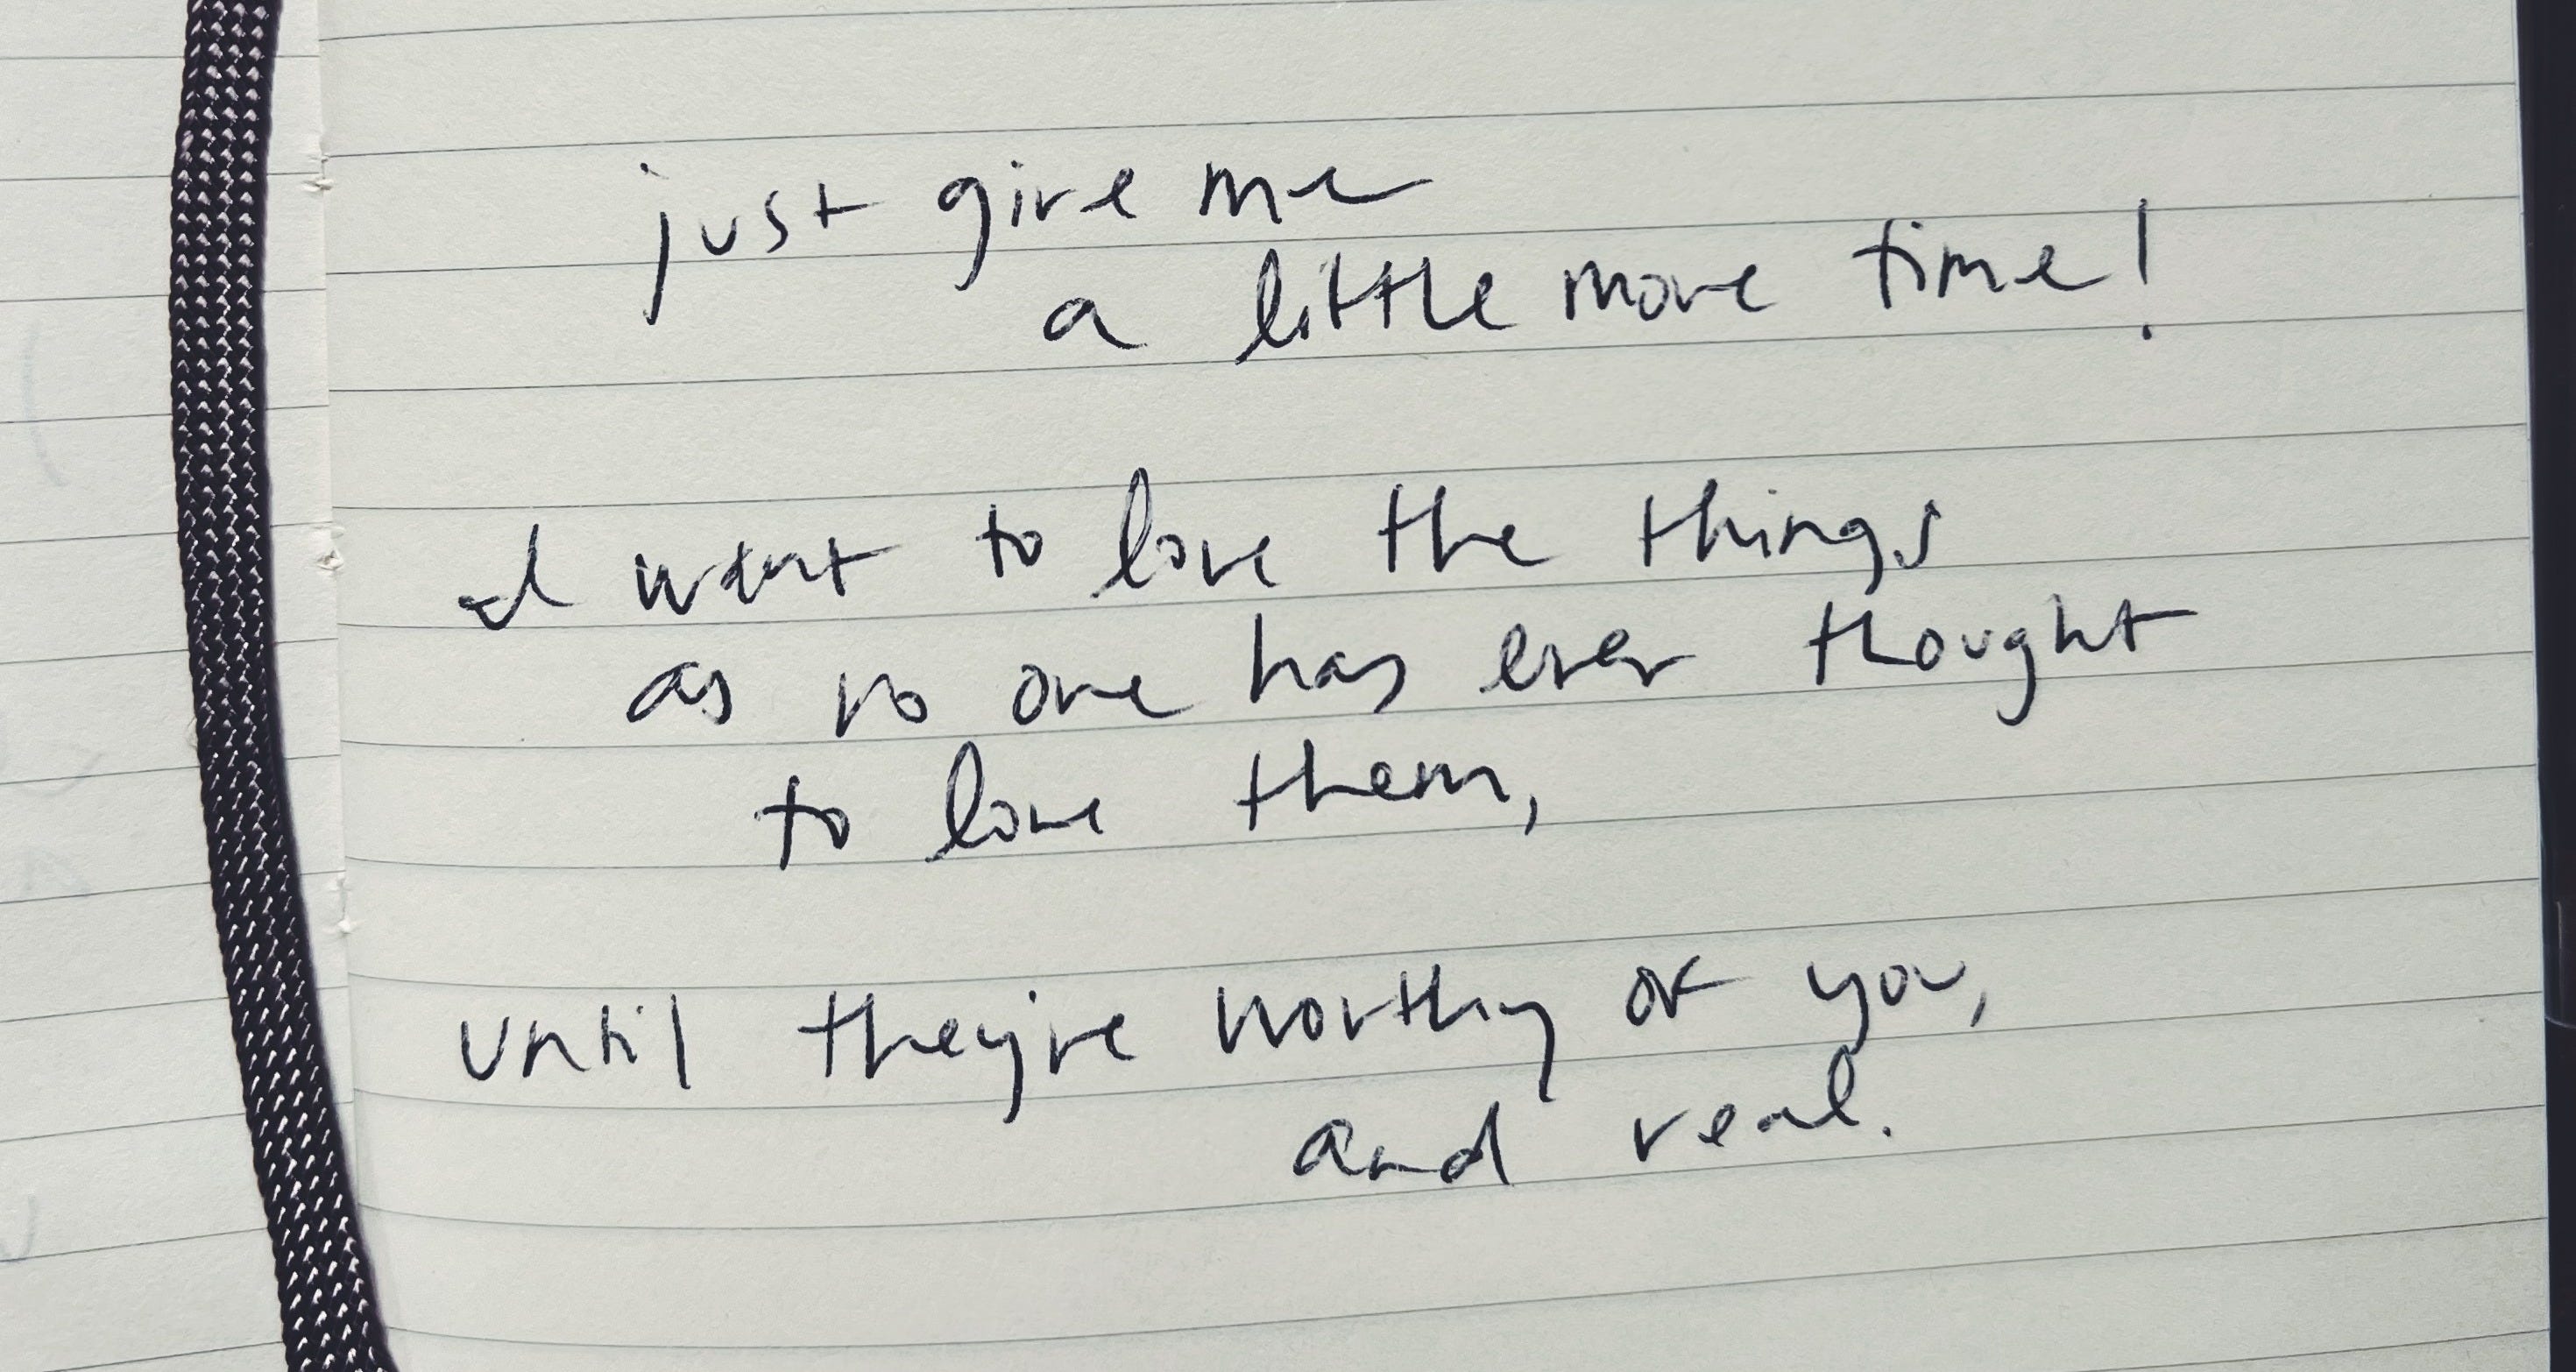 just give me
a little more time!
I want to love the things
as no one has ever thought
to love them,
until they're worthy of you,
and real.